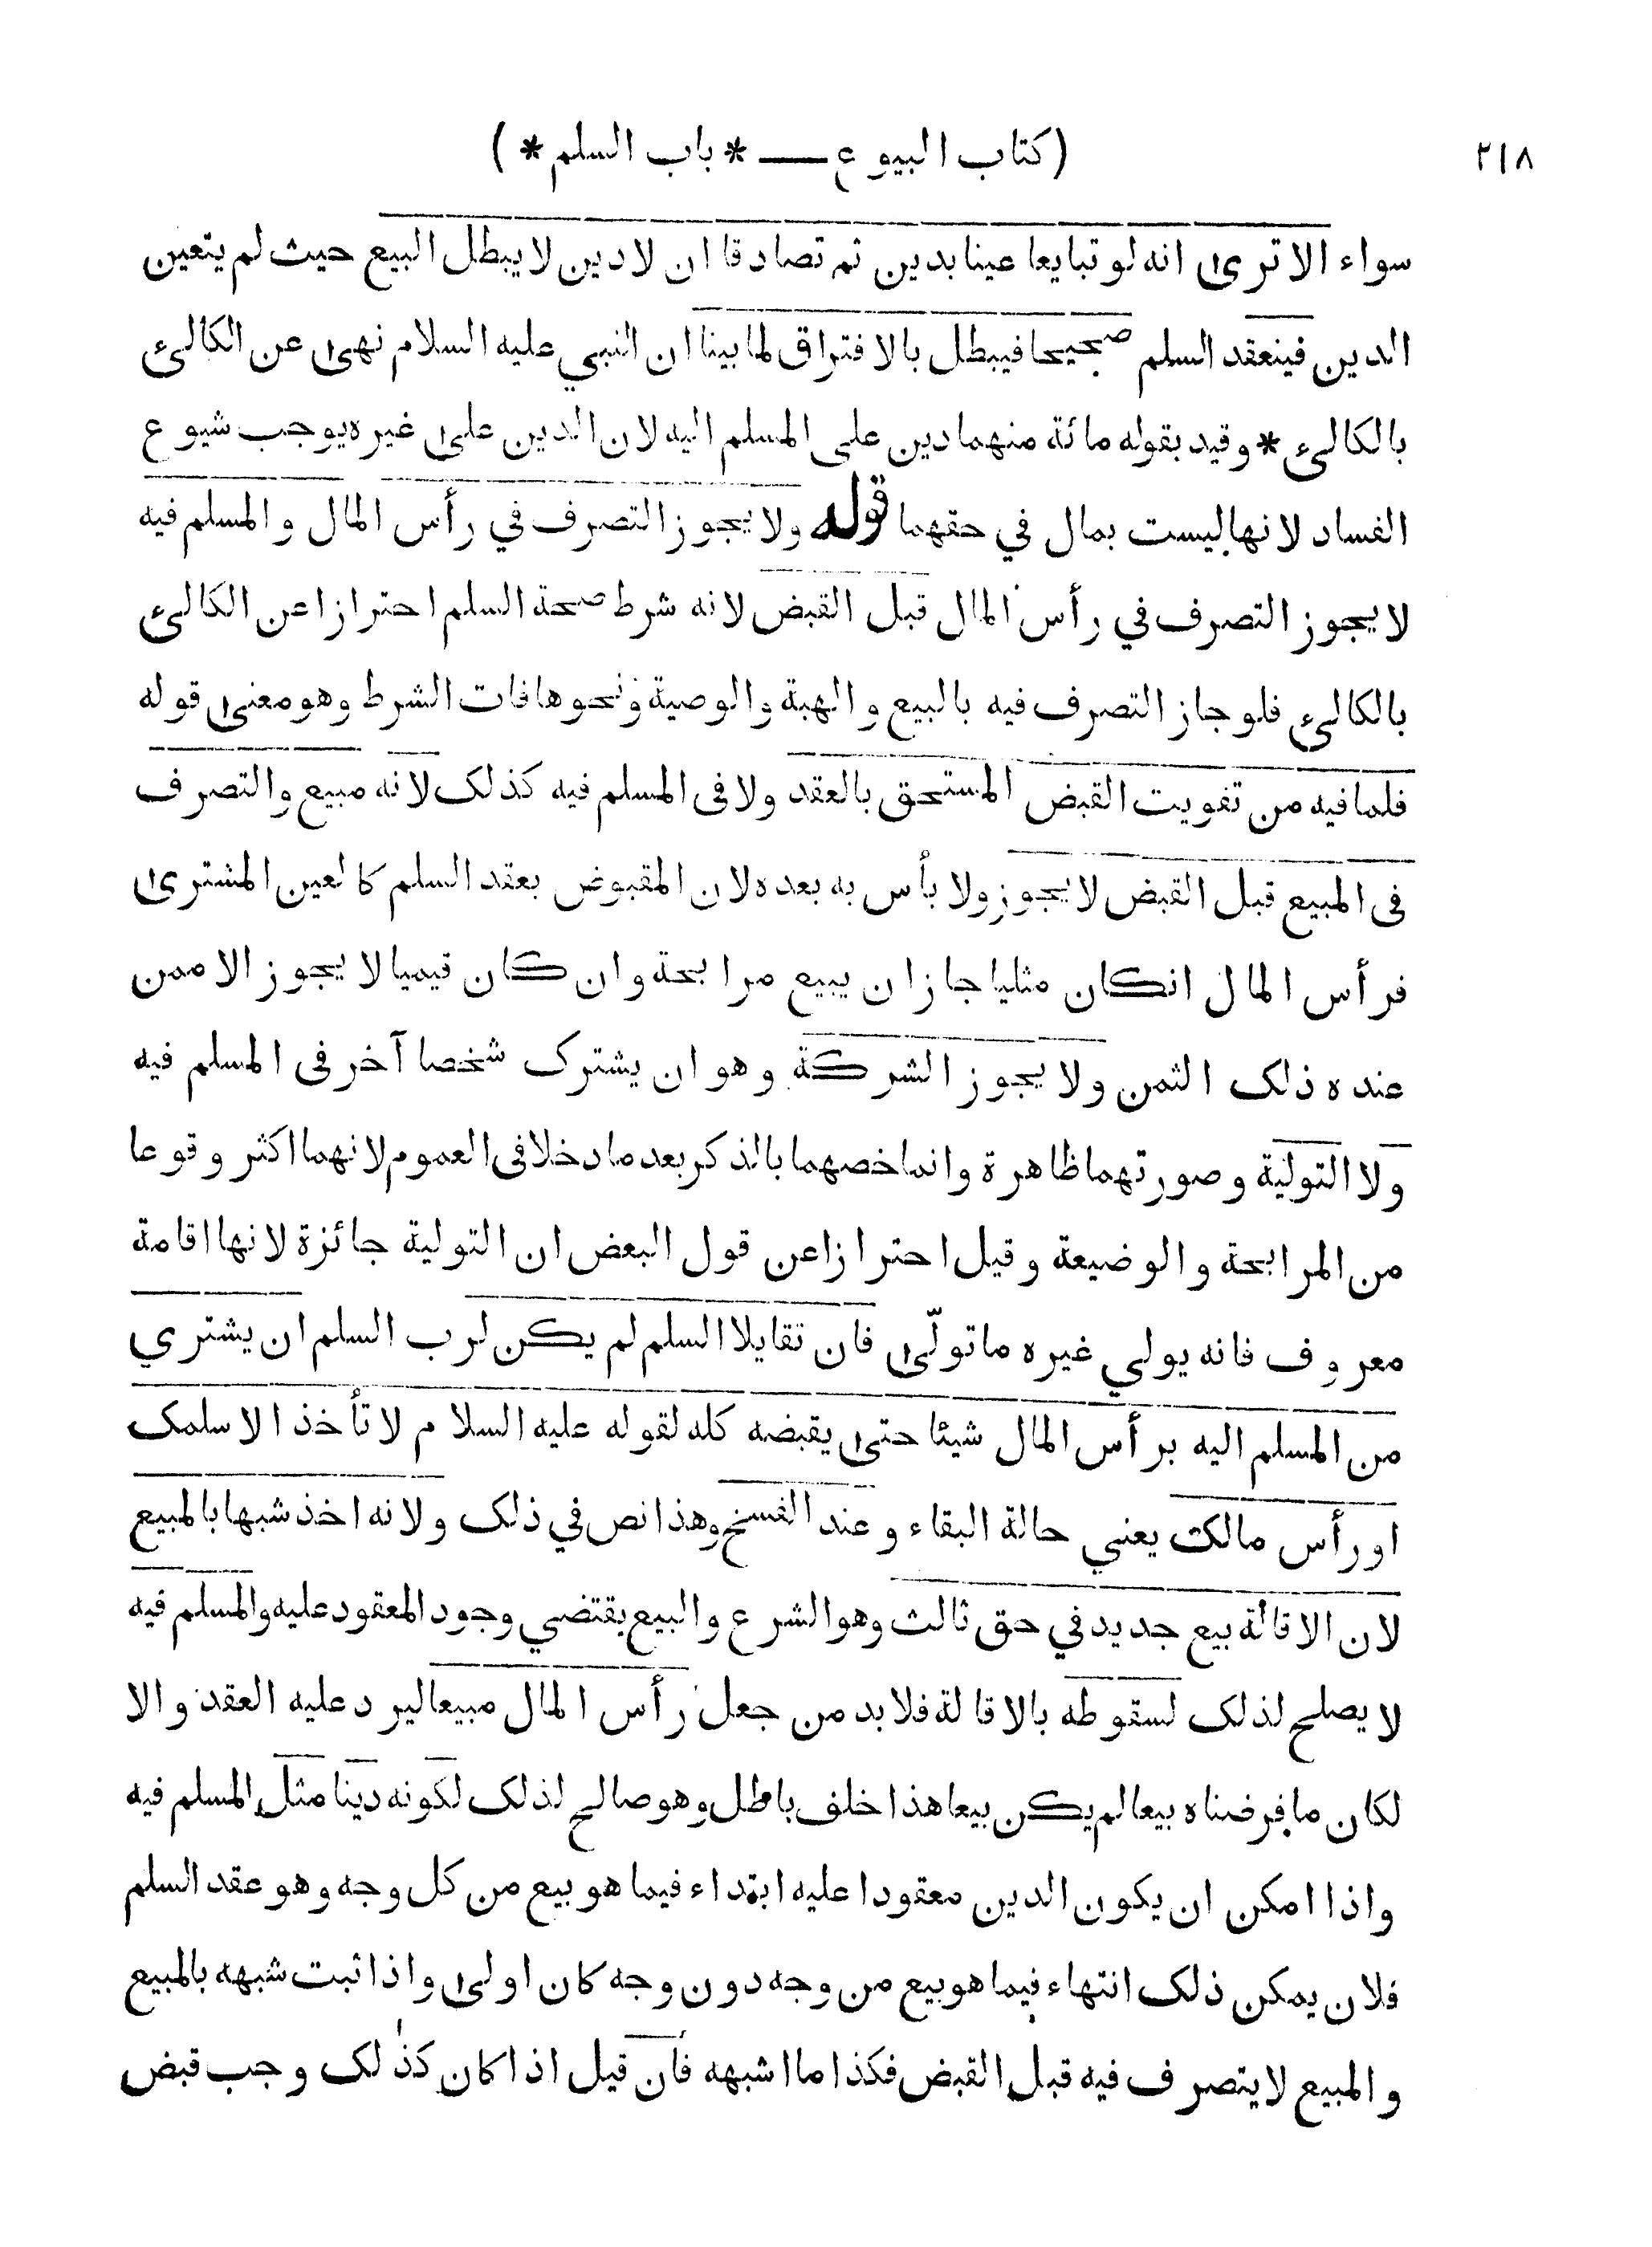 (كتاب البيوع — * باب السلم *) ٢١٨
سواء الا ترى انه لو تبايعا عينا بدين ثم تصادقا ان لا دين لا يبطل البيع حيث لم يتعين
الدين فينعقد السلم صحيحا فيبطل بالافتراق لما بينا ان النبي عليه السلام نهى عن الكالئ
بالكالئ * وقيد بقوله مائة منهما دين على المسلم اليه لان الدين على غيره يوجب شيوع
الفساد لانها ليست بمال في حقهما قوله ولا يجوز التصرف في رأس المال والمسلم فيه
لا يجوز التصرف في رأس المال قبل القبض لانه شرط صحة السلم احترازا عن الكالئ
بالكالئ فلو جاز التصرف فيه بالبيع والهبة والوصية ونحوها فات الشرط وهو معنى قوله
فلما فيه من تفويت القبض المستحق بالعقد ولا فى المسلم فيه كذلك لانه مبيع والتصرف
فى المبيع قبل القبض لا يجوز ولا بأس به بعده لان المقبوض بعقد السلم كالعين المشترى
فرأس المال انكان مثليا جاز ان يبيع مرابحة وان كان قيميا لا يجوز الا ممن
عنده ذلك الثمن ولا يجوز الشركة وهو ان يشترك شخصا آخر فى المسلم فيه
ولا التولية وصورتهما ظاهرة وانما خصهما بالذكر بعد ما دخلا فى العموم لانهما اكثر وقوعا
من المرابحة والوضيعة وقيل احترازا عن قول البعض ان التولية جائزة لانها اقامة
معروف فانه يولي غيره ما تولّى فان تقايلا السلم لم يكن لرب السلم ان يشتري
من المسلم اليه برأس المال شيئا حتى يقبضه كله لقوله عليه السلام لا تأخذ الا سلمك
او رأس مالك يعني حالة البقاء وعند الفسخ وهذا نص في ذلك ولانه اخذ شبها بالمبيع
لان الاقالة بيع جديد في حق ثالث وهو الشرع والبيع يقتضي وجود المعقود عليه والمسلم فيه
لا يصلح لذلك لسقوطه بالاقالة فلا بد من جعل رأس المال مبيعا ليرد عليه العقد والا
لكان ما فرضناه بيعا لم يكن بيعا هذا خلف باطل وهو صالح لذلك لكونه دينا مثل المسلم فيه
واذا امكن ان يكون الدين معقودا عليه ابتداء فيما هو بيع من كل وجه وهو عقد السلم
فلان يمكن ذلك انتهاء فيما هو بيع من وجه دون وجه كان اولى واذا ثبت شبهه بالمبيع
والمبيع لا يتصرف فيه قبل القبض فكذا ما اشبهه فان قيل اذا كان كذلك وجب قبض